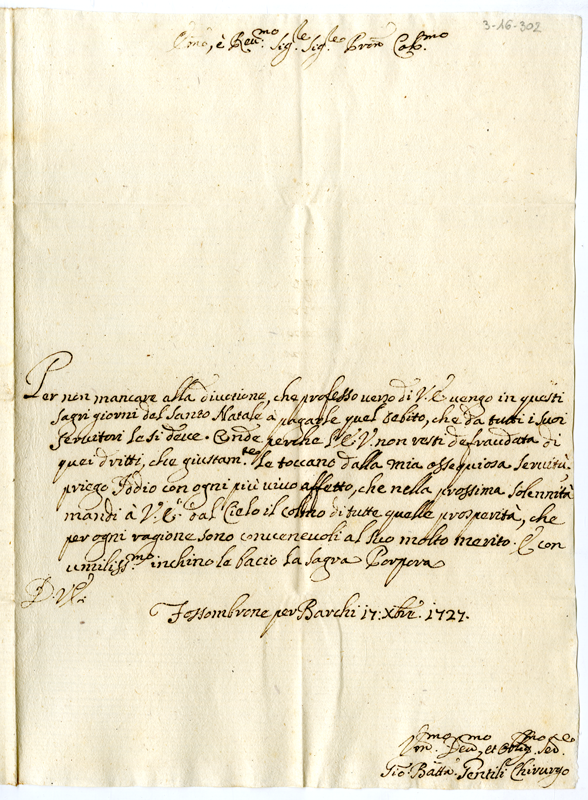 3-16-302
Em̃o, è Reu.mo Sig.re Sig.re Pron Col.mo
Per non mancare alla diuotione, che professo uerso di V.E. uengo in questi
sagri giorni del Santo Natale à pagarle quel debito, che da tutti i suoi
seruitori le si deue. Onde perche l'E.V. non resti defraudata di
quei dritti, che giustam.te le toccano dalla mia ossequiosa seruitù,
priego Iddio con ogni più uiuo affetto, che nella prossima solennità
mandi à V.E. dal Cielo il colmo di tutte quelle prosperità, che
per ogni ragione sono conueneuoli al suo molto merito. E con
umiliss.mo inchino le bacio la sagra Porpora
D. V.E.
Fossombrone per Barchi 17: Xbre. 1727.
Um.mo Deu.mo, et Obblig.mo Ser.
Gio: Batta Gentili Chirurgo